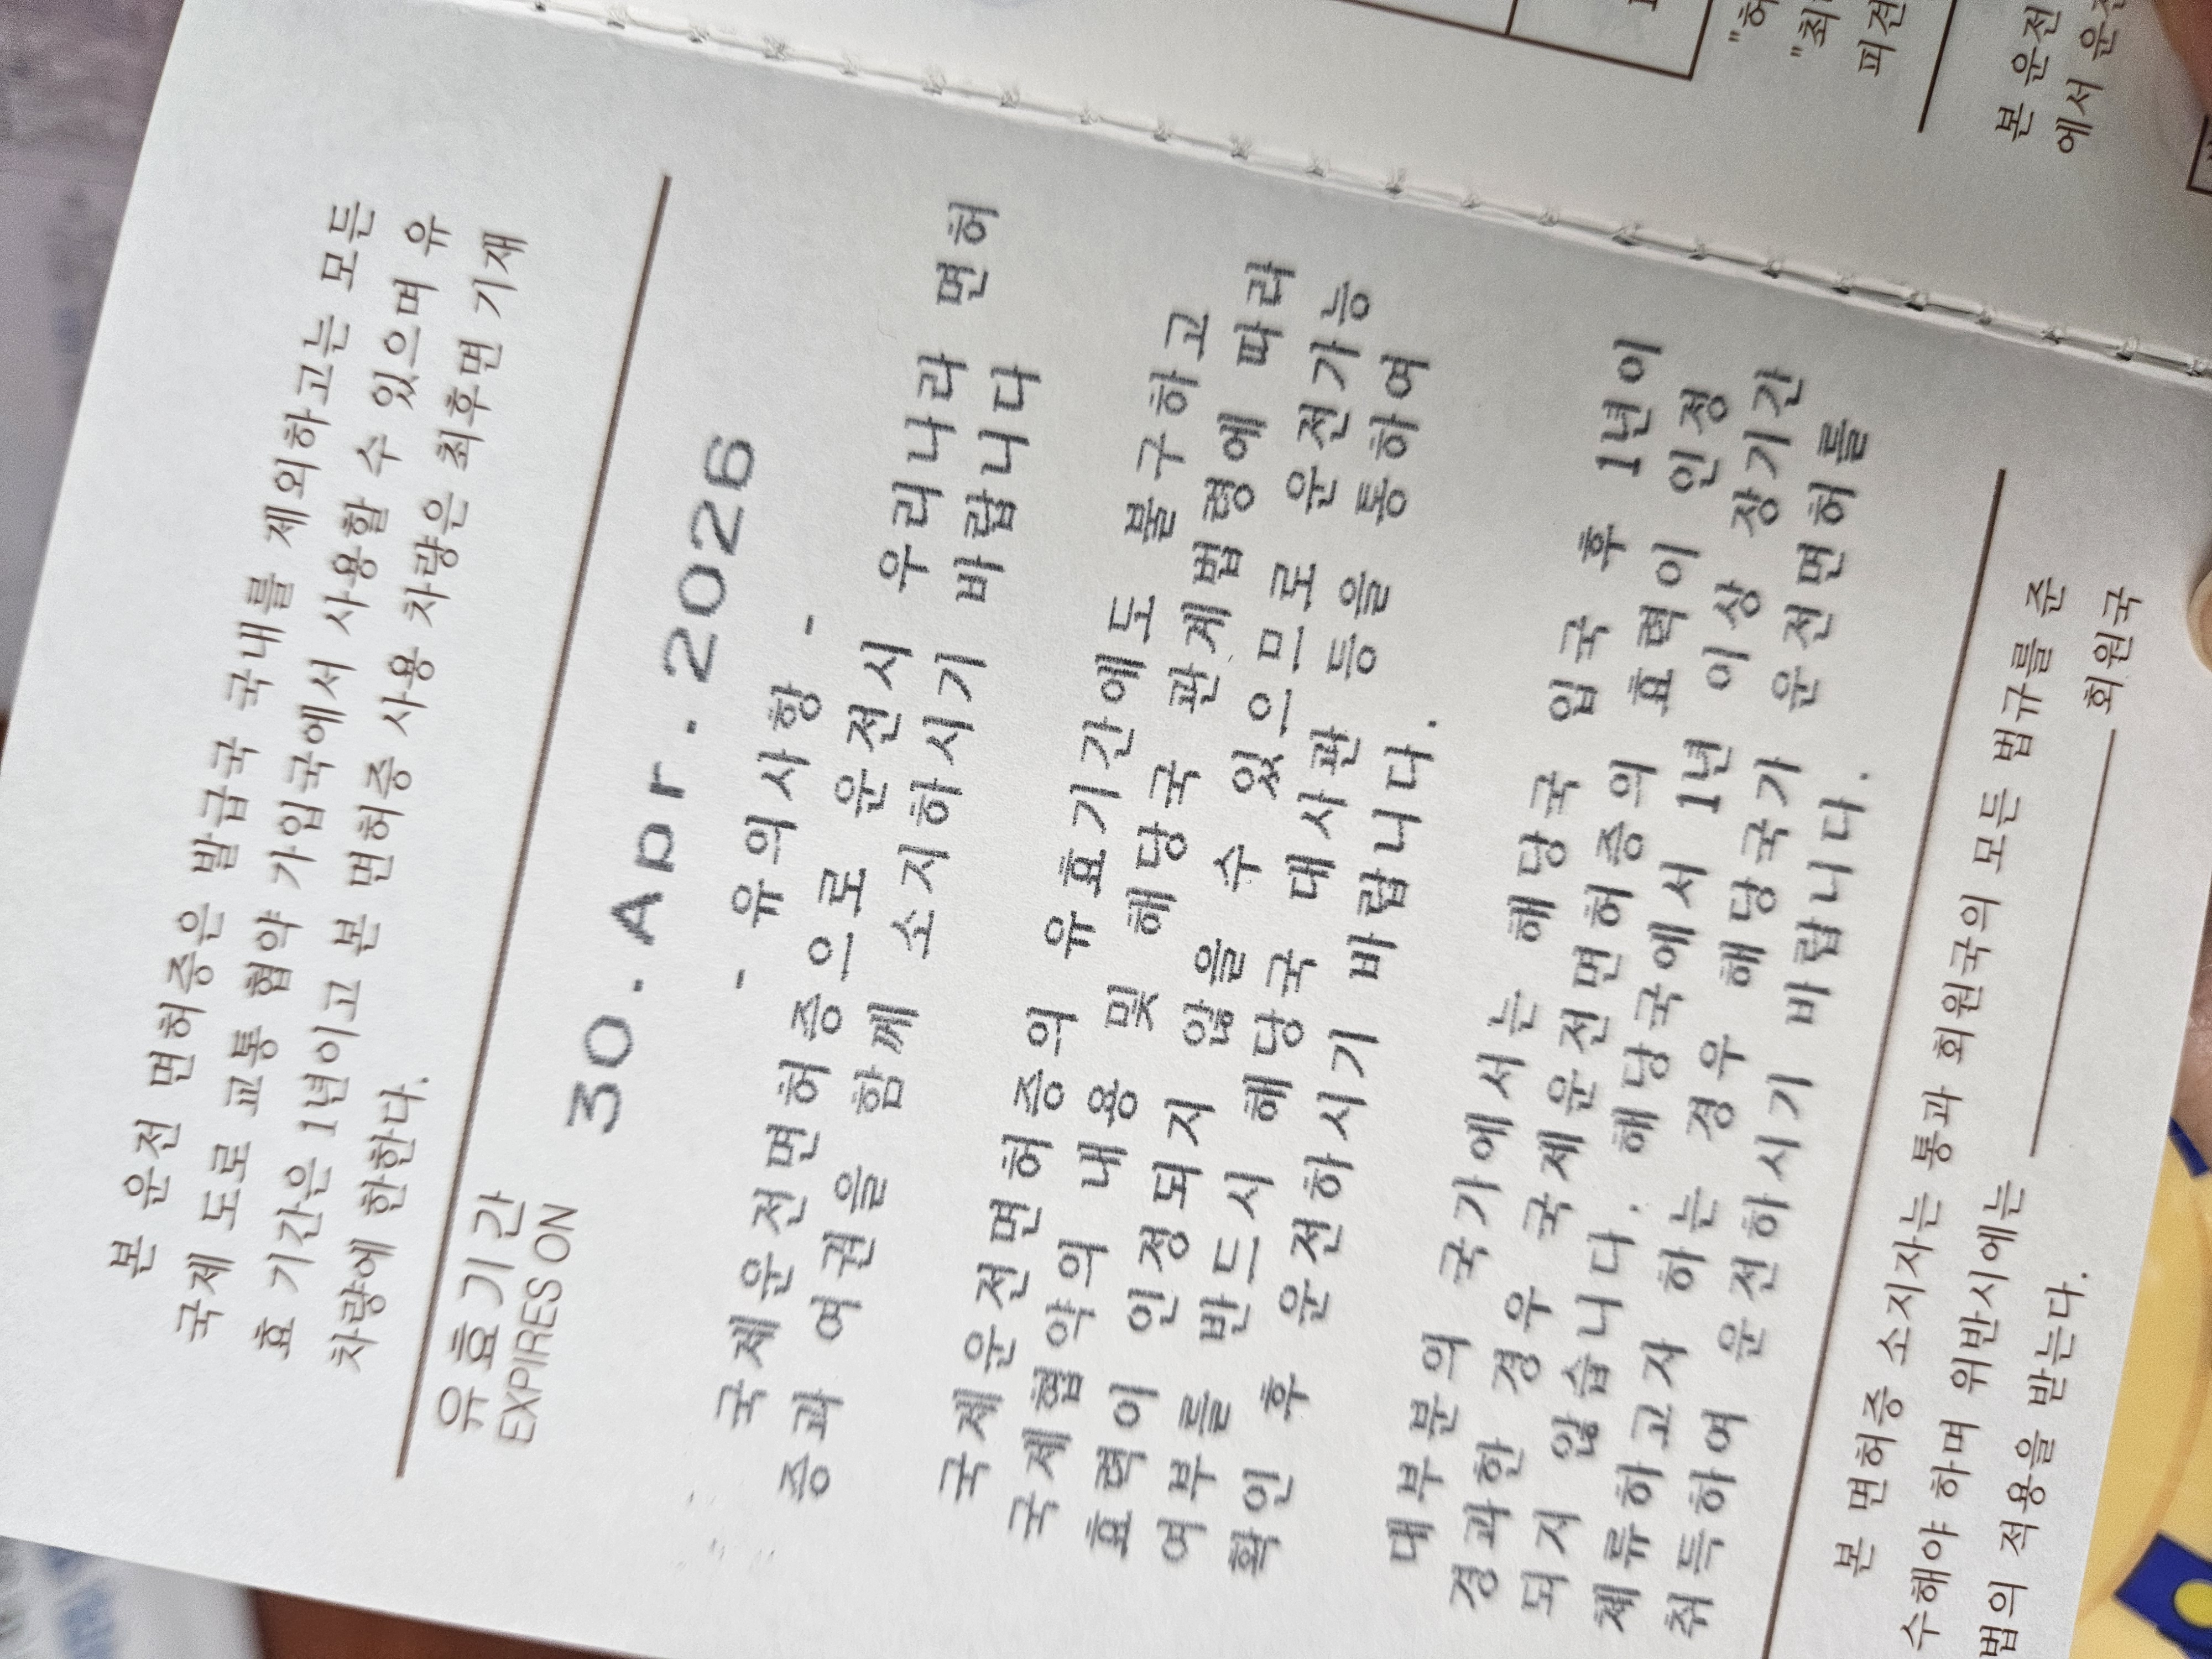 본 운전 면허증은 발급국 국내를 제외하고는 모든
국제 도로 교통 협약 가입국에서 사용할 수 있으며 유
효 기간은 1년이고 본 면허증 사용 차량은 최후면 기재
차량에 한한다.
유효기간
EXPIRES ON
30. Apr. 2026
- 유의사항 -
국제운전면허증으로 운전시 우리나라 면허
증과 여권을 함께 소지하시기 바랍니다
국제운전면허증의 유효기간에도 불구하고
국제협약의 내용 및 해당국 관계법령에 따라
효력이 인정되지 않을 수 있으므로 운전가능
여부를 반드시 해당국 대사관 등을 통하여
확인 후 운전하시기 바랍니다.
대부분의 국가에서는 해당국 입국 후 1년이
경과한 경우 국제운전면허증의 효력이 인정
되지 않습니다. 해당국에서 1년 이상 장기간
체류하고자 하는 경우 해당국가 운전면허를
취득하여 운전하시기 바랍니다.
본 면허증 소지자는 통과 회원국의 모든 법규를 준
수해야 하며 위반시에는 회원국
법의 적용을 받는다.
피견
본 운전
에서 운전